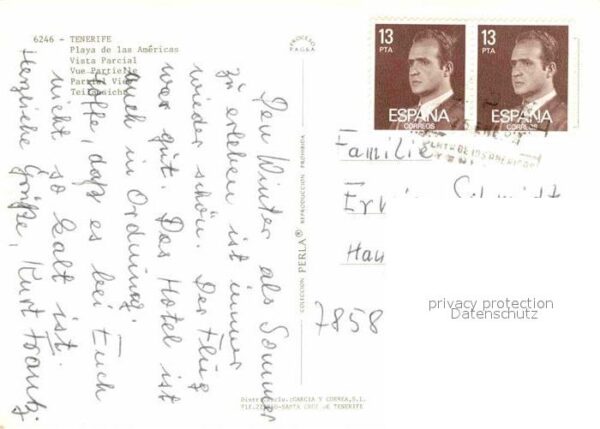 6246 - TENERIFE
Playa de las Américas
Vista Parcial
Vue Partielle
Partial View
Teilansicht
PROCESO
PAGRA
Den Winter als Sommer
zu erleben ist immer
wieder schön. Der Flug
war gut. Das Hotel ist
auch in Ordnung.
Hoffe, daß es bei Euch
nicht so kalt ist.
Herzliche Grüße, Kurt Frantz
COLECCION PERLA® REPRODUCCION PROHIBIDA
13
PTA
ESPAÑA
CORREOS
13
PTA
ESPAÑA
CORREOS
PLAYA DE LAS AMERICAS
Familie
Schmidt
Hau
7858
privacy protection
Datenschutz
GARCIA Y CORREA, S.L.
SANTA CRUZ DE TENERIFE